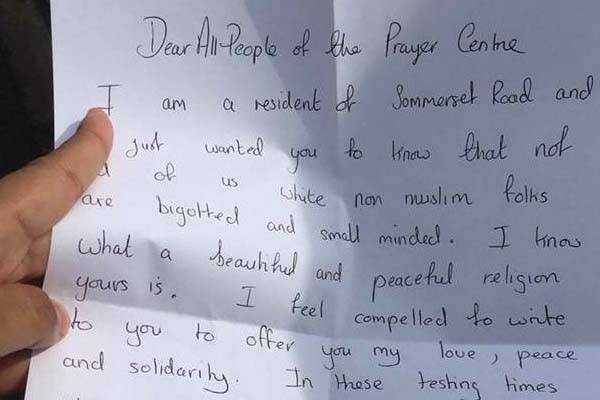 Dear All People of the Prayer Centre
I am a resident of Sommerset Road and
Just wanted you to know that not
of us white non muslim folks
are bigotted and small minded. I know
what a beautiful and peaceful religion
yours is. I feel compelled to write
to you to offer you my love, peace
and solidarity. In these testing times